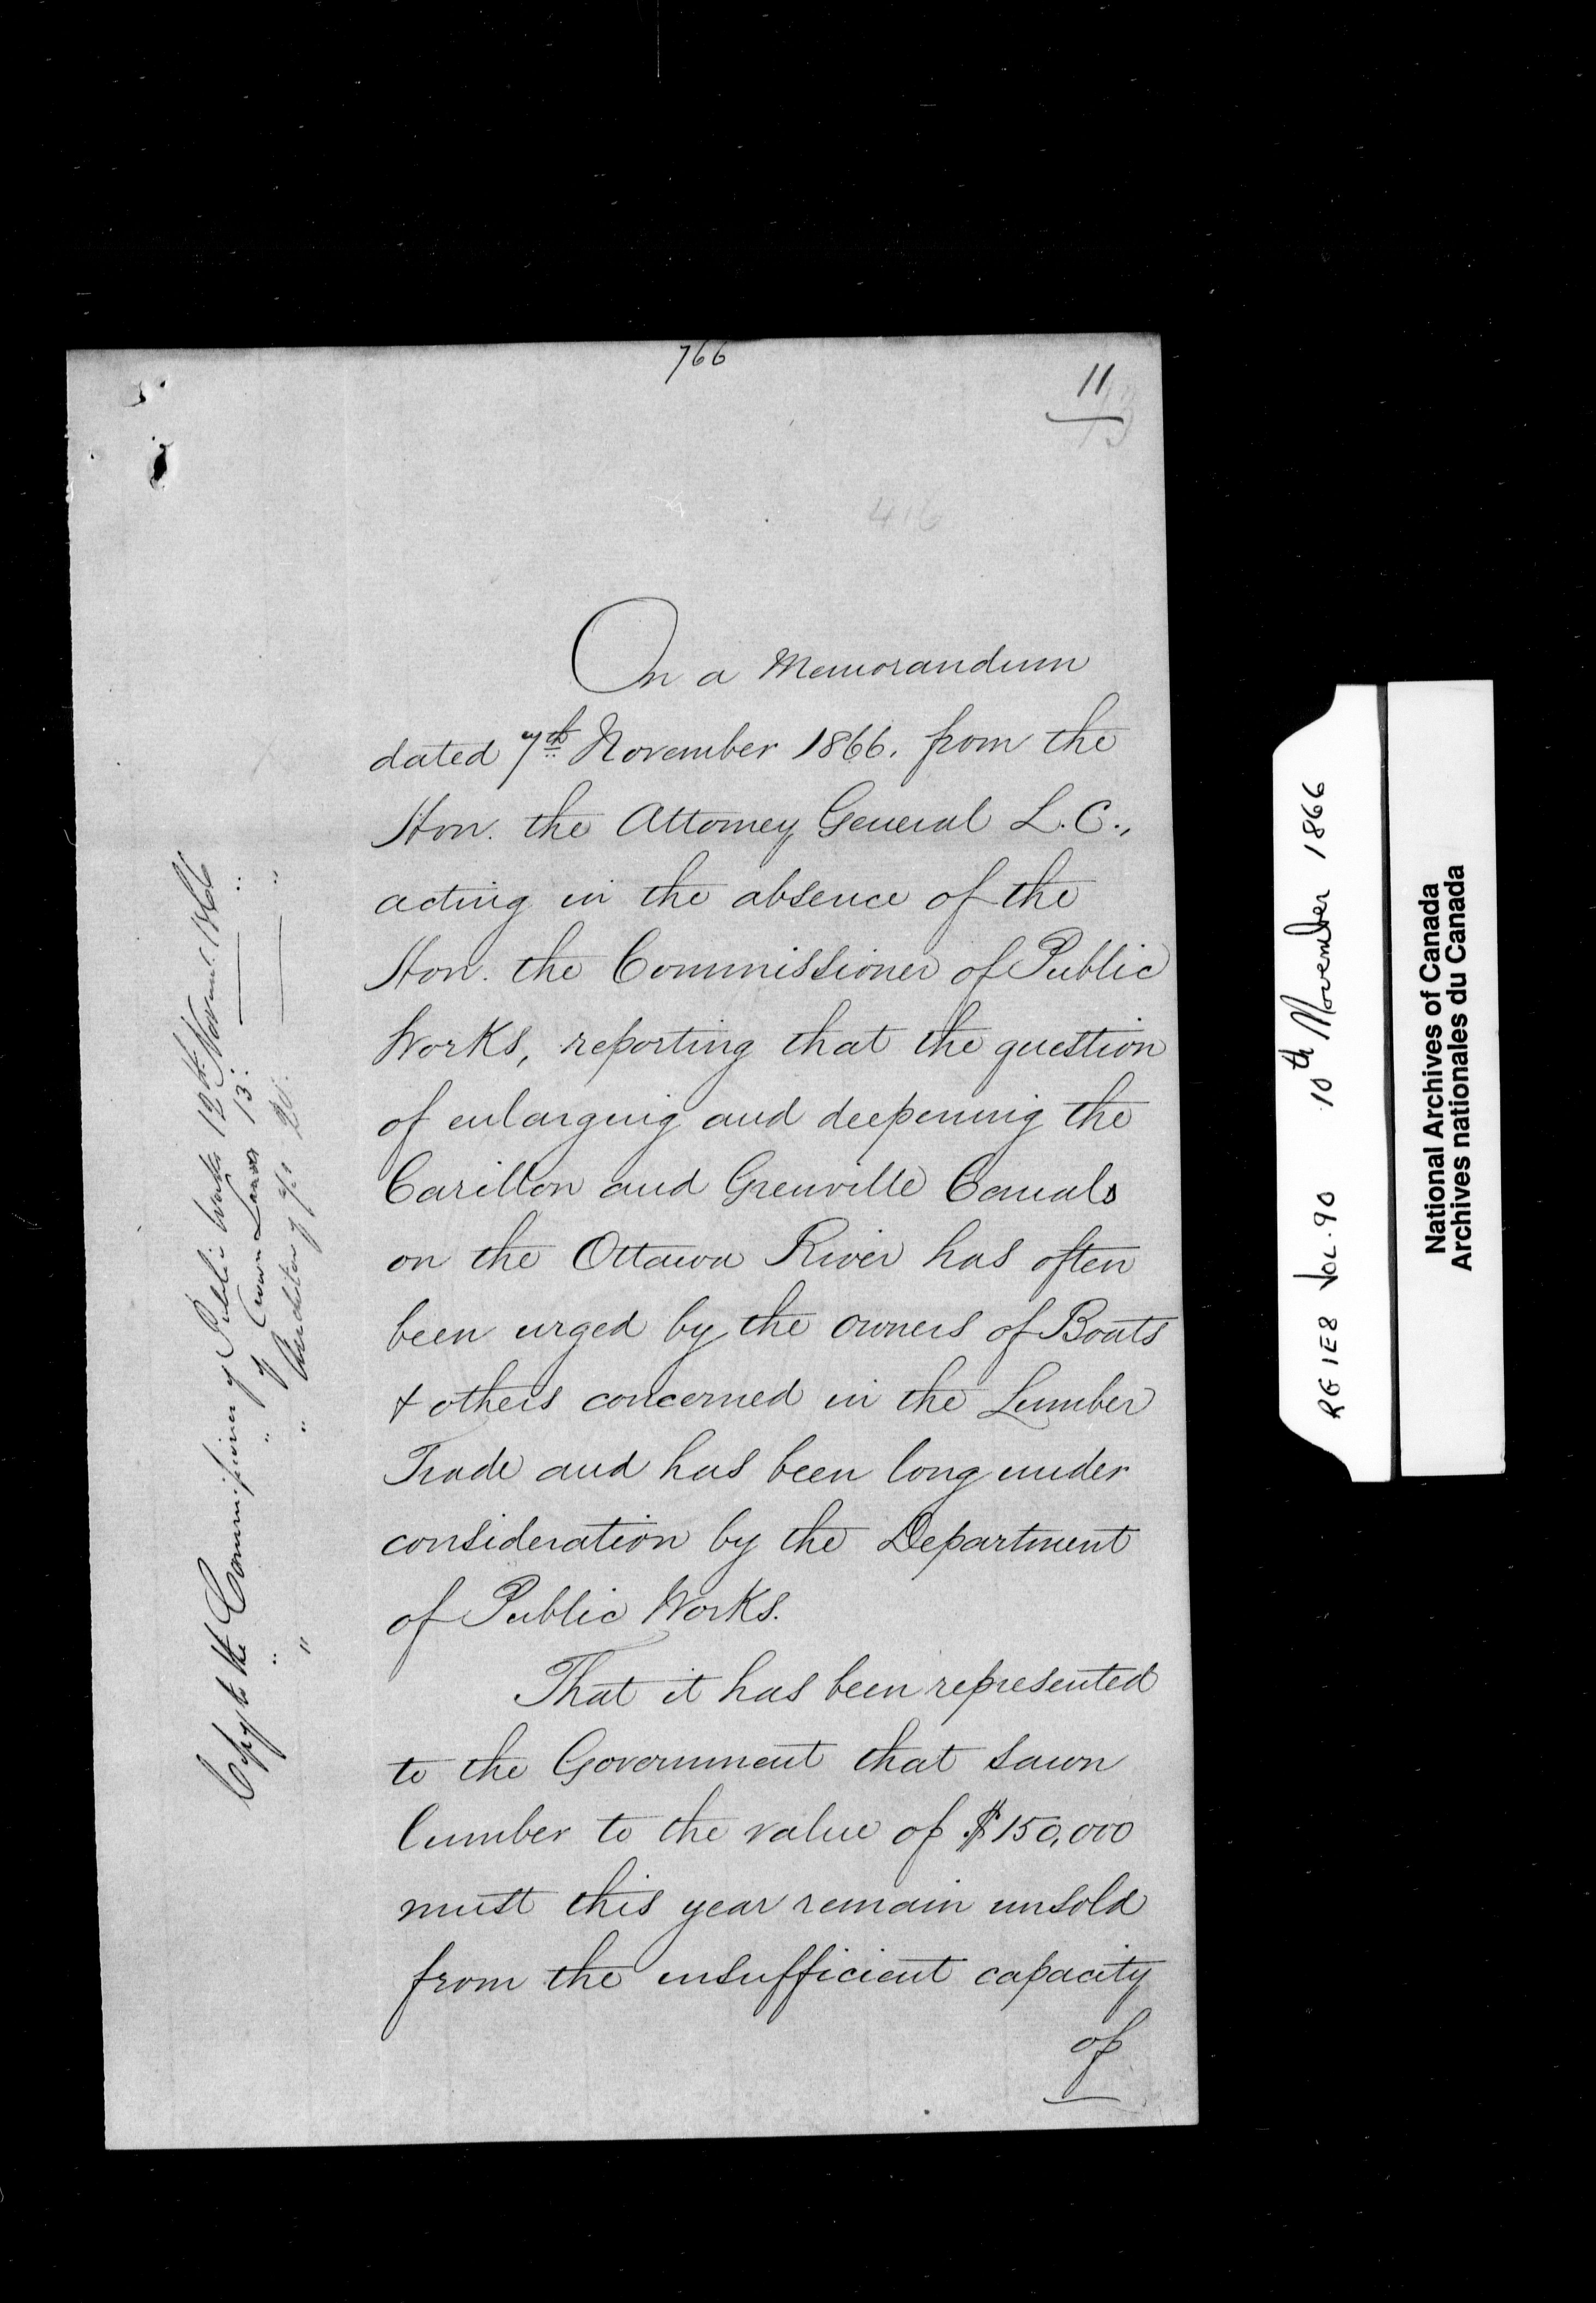 766
11
13
416
On a Memorandum
dated 7th November 1866. from the
Hon. the Attorney General L.C.,
acting in the absence of the
Hon. the Commissioner of Public
Works, reporting that the question
of enlarging and deepening the
Carillon and Grenville Canals
on the Ottawa River has often
been urged by the owners of Boats
& others concerned in the Lumber
Trade and has been long under
consideration by the Department
of Public Works.
That it has been represented
to the Government that sawn
lumber to the value of $150,000
must this year remain unsold
from the insufficient capacity
of
Copy to the Commissioner of Public Works 12th Novemr. 1866
" " of Crown Lands 13. — "
" " Auditor 20. — "
RG 1E8 VOL. 90 10th November 1866
National Archives of Canada
Archives nationales du Canada